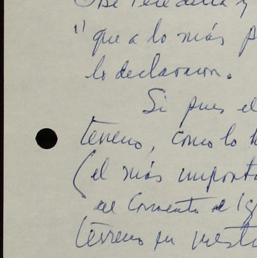 que a lo más
lo declaracion.
Si pues el
terreno, como lo
(el más import
de Convento de Ig
terreno su